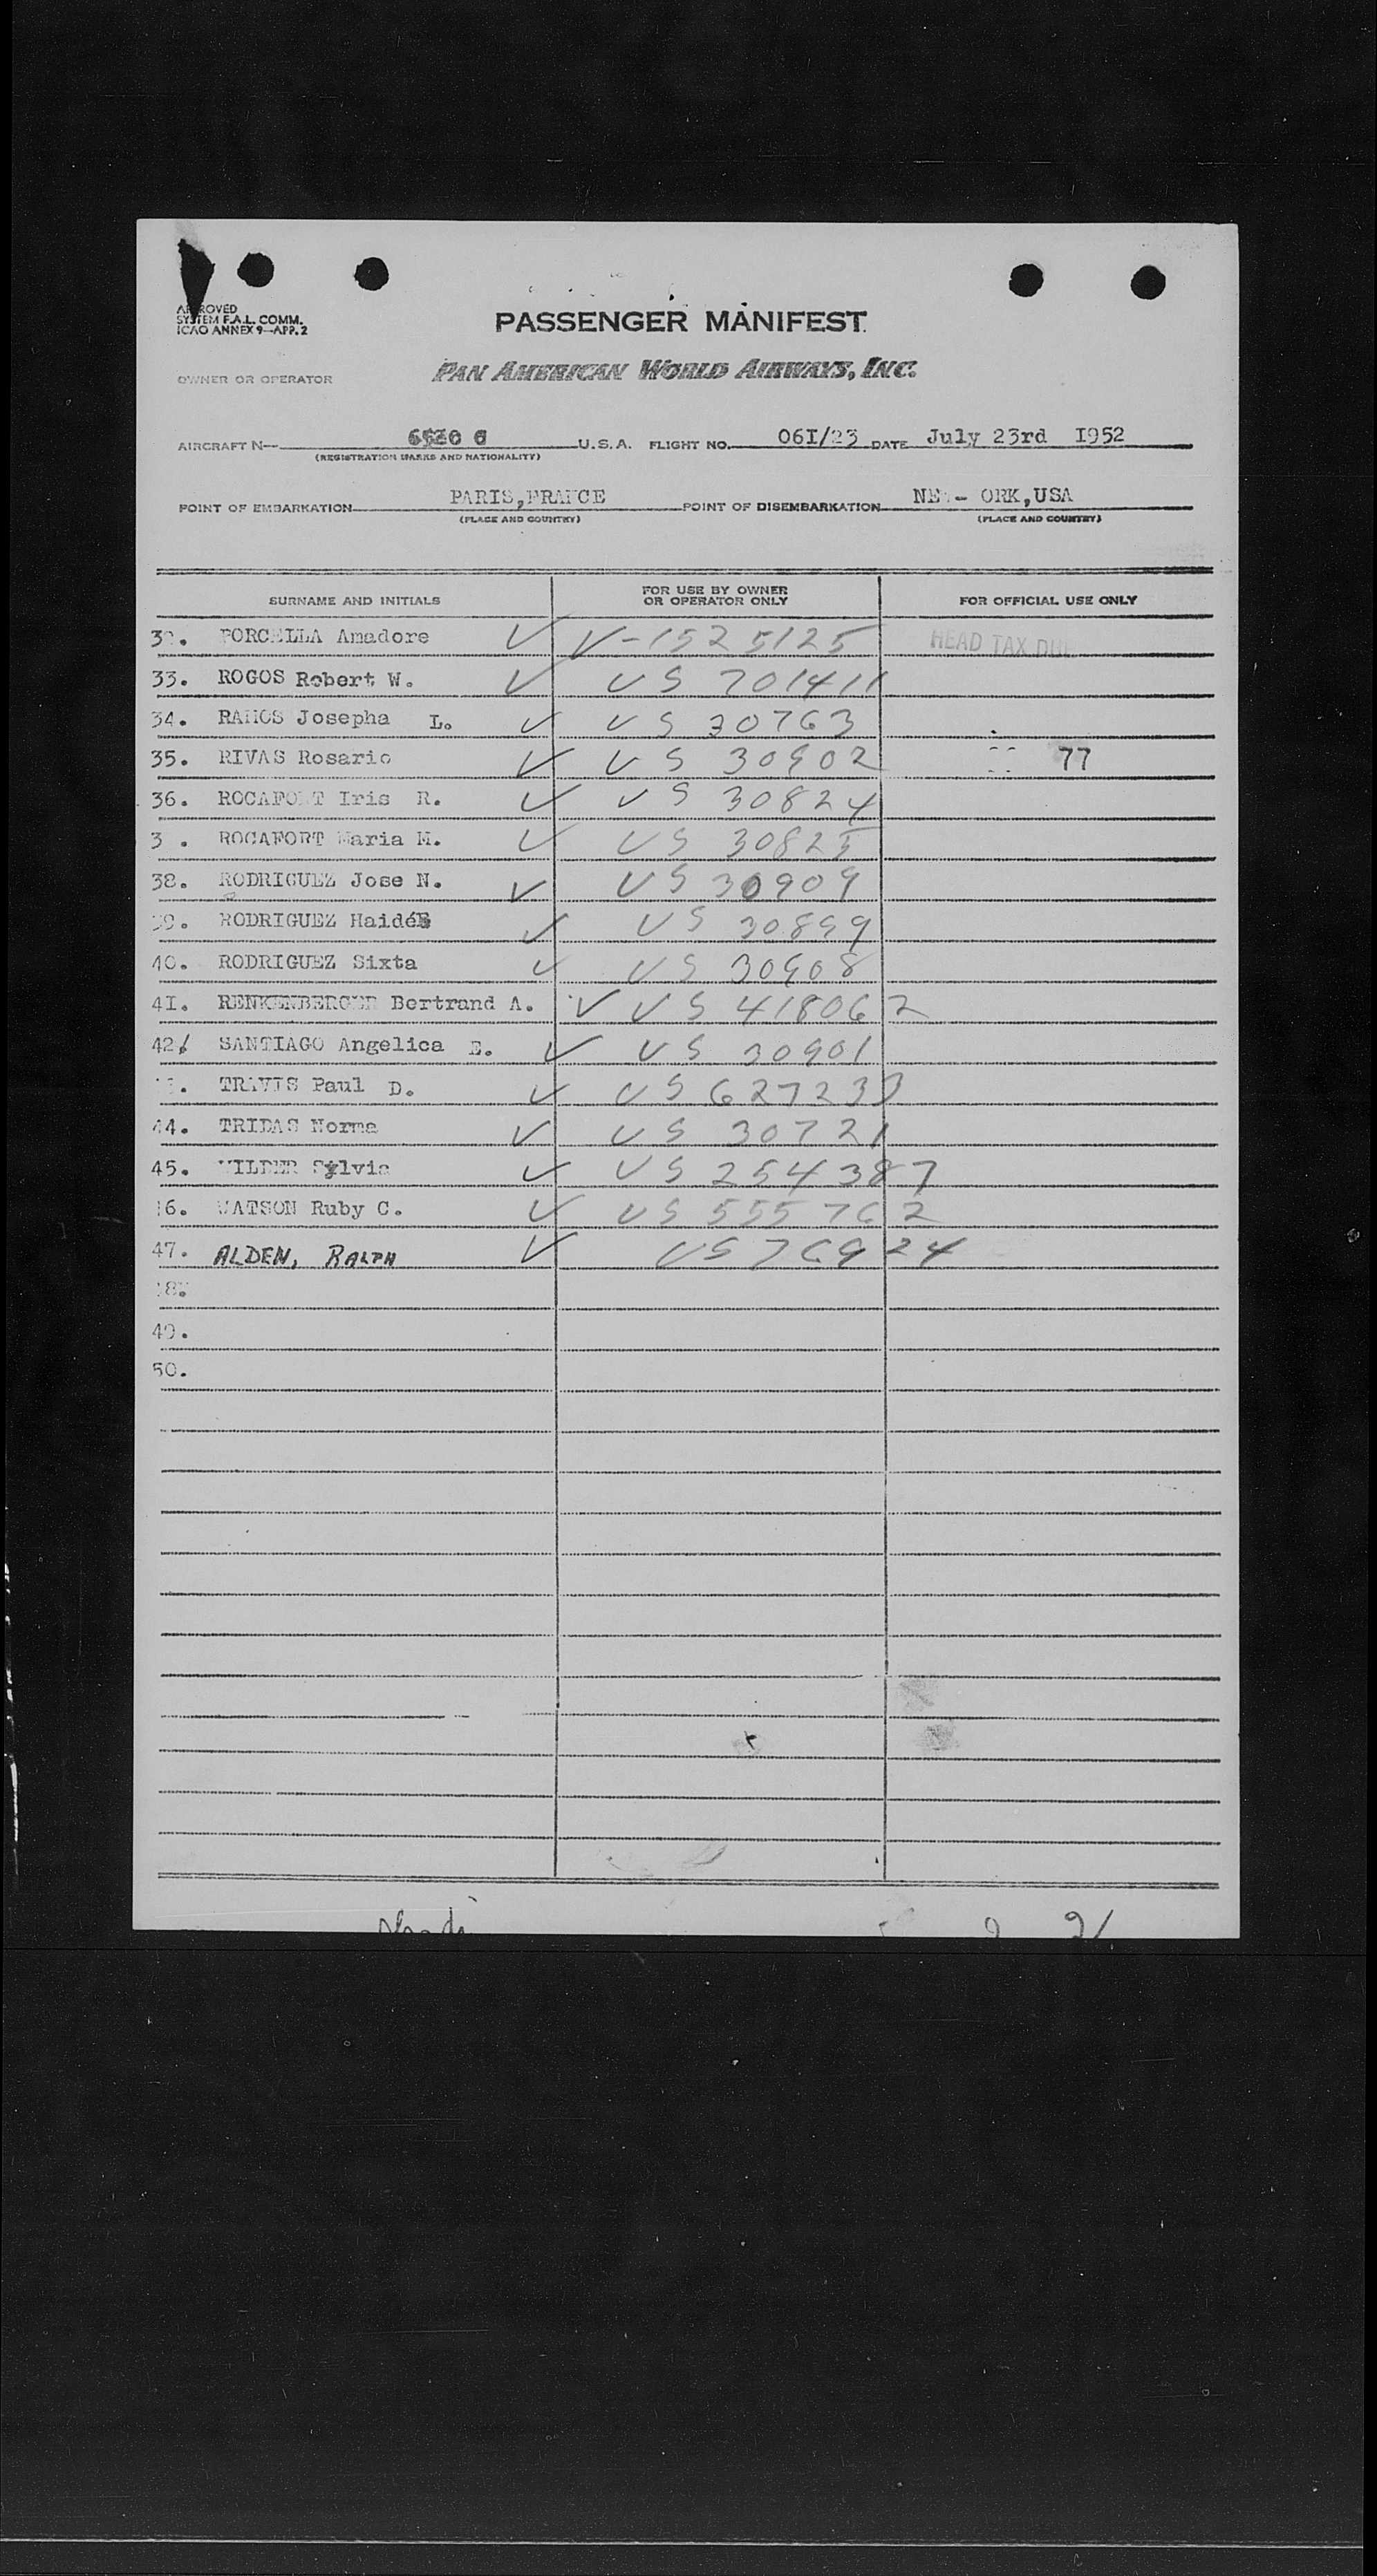 APPROVED
SYSTEM F.A.L. COMM.
ICAO ANNEX 9—APP. 2
PASSENGER MANIFEST
OWNER OR OPERATOR PAN AMERICAN WORLD AIRWAYS, INC.
AIRCRAFT N— U.S.A. FLIGHT NO. 06I/23 DATE July 23rd I952
(REGISTRATION MARKS AND NATIONALITY)
POINT OF EMBARKATION PARIS,FRANCE POINT OF DISEMBARKATION NEW-YORK,USA
(PLACE AND COUNTRY) (PLACE AND COUNTRY)
SURNAME AND INITIALS FOR USE BY OWNER OR OPERATOR ONLY FOR OFFICIAL USE ONLY
32. PORCELLA Amadore ✓ V-1525125 HEAD TAX DUE
33. ROGOS Robert W. ✓ US 701411
34. RAMOS Josepha L. ✓ US 30763
35. RIVAS Rosario ✓ US 30902 77
36. ROCAFORT Iris R. ✓ US 30824
3 . ROCAFORT Maria M. ✓ US 30825
38. RODRIGUEZ Jose N. ✓ US 30909
39. RODRIGUEZ Haidée ✓ US 30899
40. RODRIGUEZ Sixta ✓ US 30908
4I. RENKENBERGER Bertrand A. ✓ US 418062
42. SANTIAGO Angelica E. ✓ US 30901
43. TRAVIS Paul D. ✓ US 627233
44. TRIDAS Norma ✓ US 30721
45. WILDER Sylvia ✓ US 254387
46. WATSON Ruby C. ✓ US 555762
47. ALDEN, RALPH ✓ US 76924
48.
49.
50.